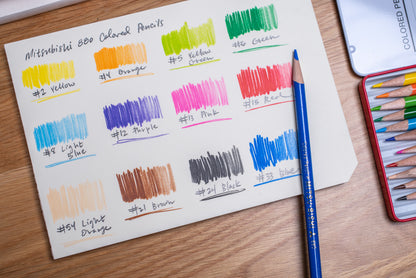 Mitsubishi 880 Colored Pencils
#2 Yellow
#4 Orange
#5 Yellow
Green
#6 Green
#8 Light
Blue
#12 Purple
#13 Pink
#15 Red
#54 Light
Orange
#21 Brown
#24 Black
#33 Blue
COLORED PE